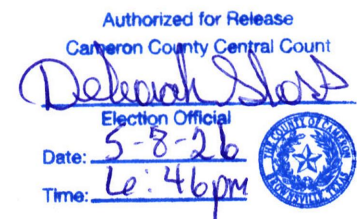 Authorized for Release
Cameron County Central Count
Deborah
Election Official
Date: 5-8-26
Time: 6:46pm
THE COUNTY OF CAMERON
BROWNSVILLE, TEXAS